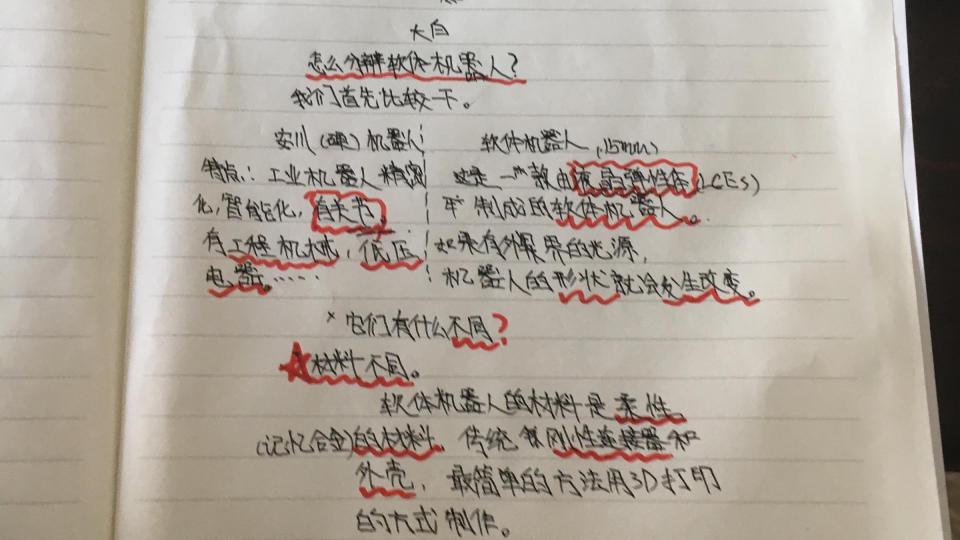 大白
怎么分辨软体机器人?
我们首先比较一下。
安川(硬)机器人
特点:工业机器人精密
化,智能化,有关节。
有工程机械,低压
电器。……
软体机器人(15mm)
这是一款由液晶弹性体(LCEs)
制成的软体机器人。
如果有外界的光源,
机器人的形状就会发生改变。
×它们有什么不同?
★材料不同。
软体机器人的材料是柔性
(记忆合金)的材料。传统 刚性连接器和
外壳,最简单的方法用3D打印
的方式制作。